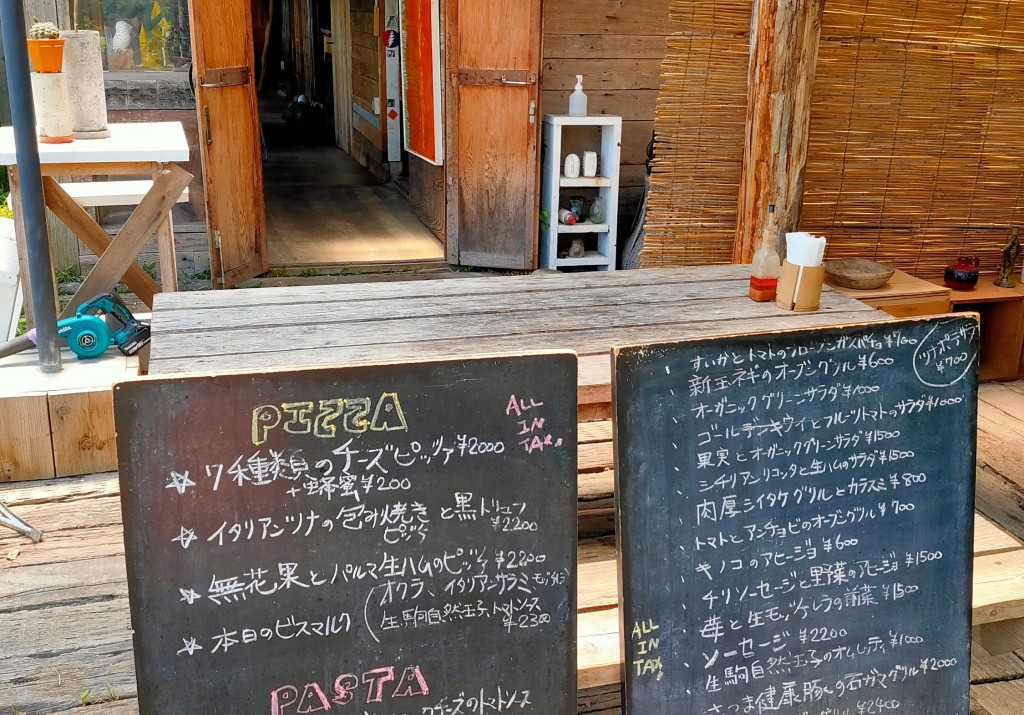 PIZZA
ALL
IN
TAX
☆ 7種類のチーズピッツァ ¥2000
+蜂蜜 ¥200
☆ イタリアンツナの包み焼きピッツァ と黒トリュフ
¥2200
☆ 無花果とパルマ生ハムのピッツァ ¥2200
☆ 本日のビスマルク
オクラ、イタリアンサラミ モッツァレラ
生駒自然玉子、トマトソース
¥2300
PASTA
チーズのトマトソース
ツナポテサラ
¥700
、すいかとトマトの ガスパチョ
、新玉ネギのオーブングリル ¥600
、オーガニックグリーンサラダ ¥1000
、ゴールデンキウイとフルーツトマトのサラダ ¥1000
、果実とオーガニックグリーンサラダ ¥1500
、シチリアンリコッタと生ハムのサラダ ¥1500
、肉厚シイタケグリルとカラスミ ¥800
、トマトとアンチョビのオーブングリル ¥700
、キノコのアヒージョ ¥600
、チリソーセージと野菜のアヒージョ ¥1500
、苺と生モッツァレラの前菜 ¥1500
、ソーセージ ¥2200
、生駒自然玉子のオムレティ ¥1000
、さつま健康豚の石ガマグリル ¥2000
グリル ¥2400
ALL
IN
TAX